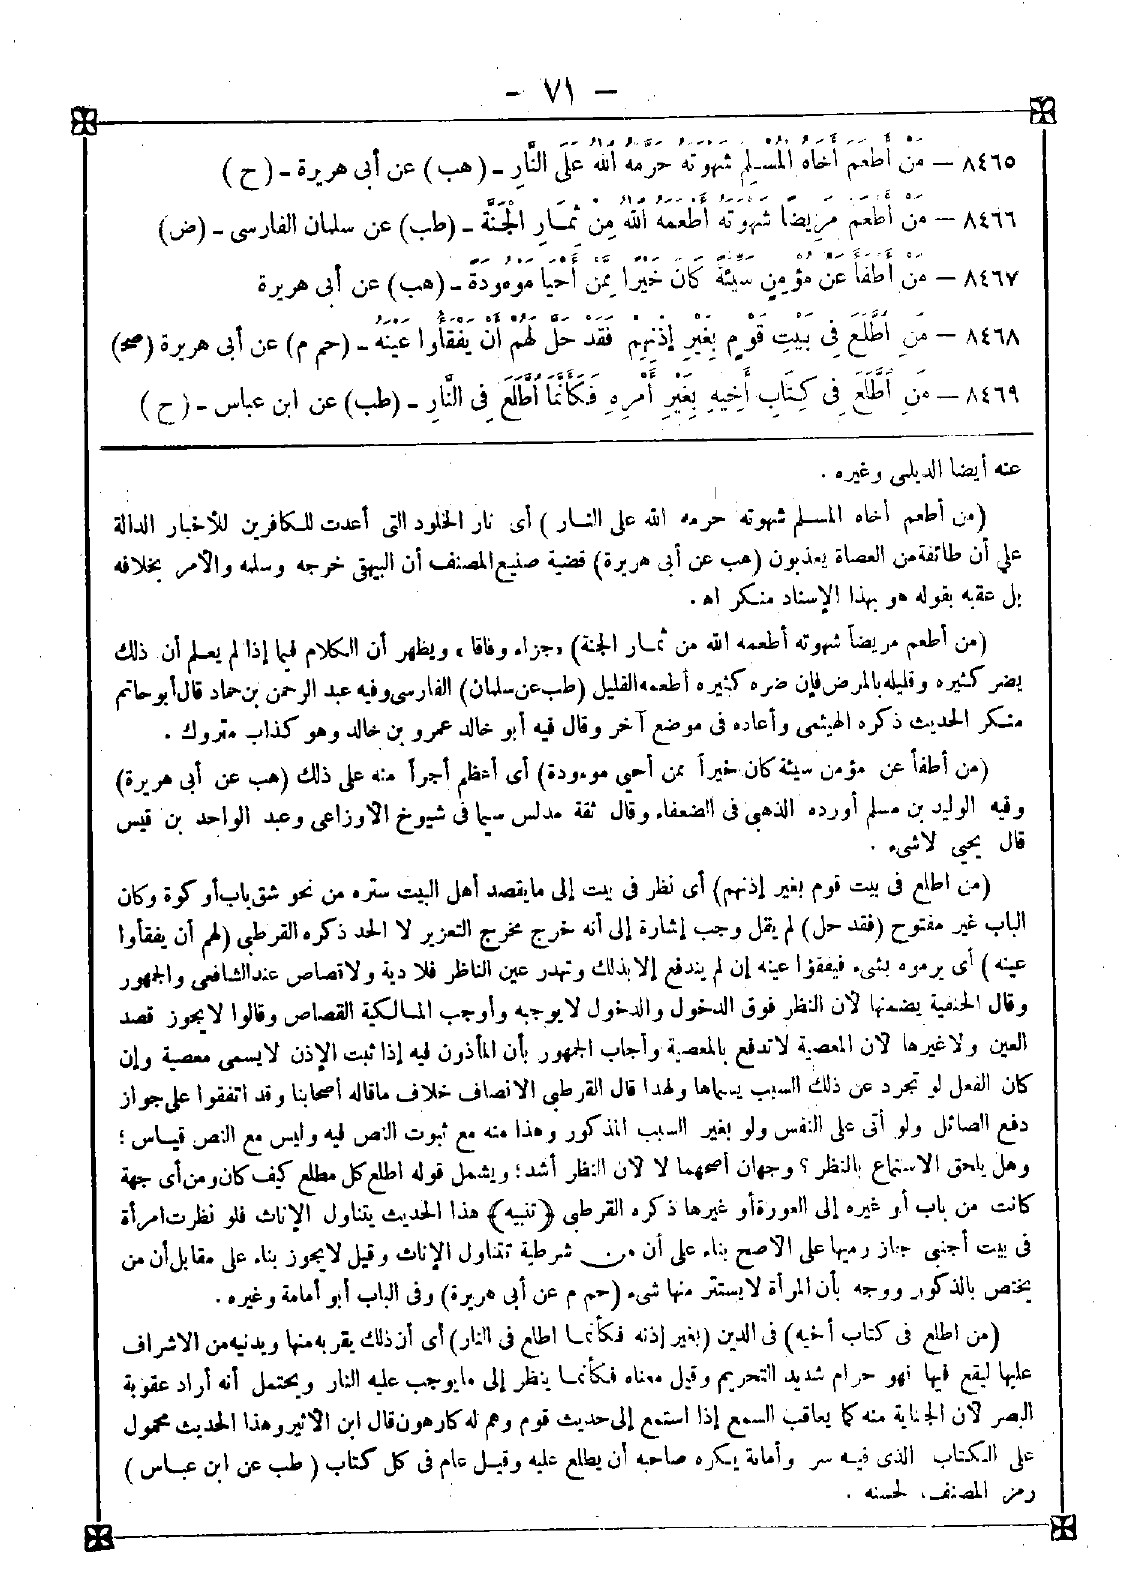 - ٧١ -
٨٤٦٥ - مَنْ أَطْعَمَ أَخَاهُ الْمُسْلِمَ شَهْوَتَهُ حَرَّمَهُ اللّٰهُ عَلَى النَّارِ - (هب) عن أبى هريرة - (ح)
٨٤٦٦ - مَنْ أَطْعَمَ مَرِيضًا شَهْوَتَهُ أَطْعَمَهُ اللّٰهُ مِنْ ثِمَارِ الْجَنَّةِ - (طب) عن سلمان الفارسى - (ض)
٨٤٦٧ - مَنْ أَطْفَأَ عَنْ مُؤْمِنٍ سَيِّئَةً كَانَ خَيْرًا مِمَّنْ أَحْيَا مَوْءُودَةً - (هب) عن أبى هريرة
٨٤٦٨ - مَنِ اَطَّلَعَ فِى بَيْتِ قَوْمٍ بِغَيْرِ إِذْنِهِمْ فَقَدْ حَلَّ لَهُمْ أَنْ يَفْقَأُوا عَيْنَهُ - (حم م) عن أبى هريرة (صح)
٨٤٦٩ - مَنِ اَطَّلَعَ فِى كِتَابِ أَخِيهِ بِغَيْرِ أَمْرِهِ فَكَأَنَّمَا اُطَّلَعَ فِى النَّارِ - (طب) عن ابن عباس - (ح)
عنه أيضا الديلمى وغيره .
(من أطعم أخاه المسلم شهوته حرمه الله على النار) أى نار الخلود التى أعدت للكافرين للأخبار الدالة
على أن طائفة من العصاة يعذبون (هب عن أبى هريرة) قضية صنيع المصنف أن البيهقى خرجه وسلمه والأمر بخلافه
بل عقبه بقوله هو بهذا الإسناد منكر اه .
(من أطعم مريضاً شهوته أطعمه الله من ثمار الجنة) «جزاء وفاقا» ويظهر أن الكلام فيما إذا لم يعلم أن ذلك
يضر كثيره وقليله بالمرض فإن ضره كثيره أطعمه القليل (طب عن سلمان) الفارسى وفيه عبد الرحمن بن حماد قال أبو حاتم
منكر الحديث ذكره الهيثمى وأعاده فى موضع آخر وقال فيه أبو خالد عمرو بن خالد وهو كذاب متروك .
(من أطفأ عن مؤمن سيئة كان خيراً ممن أحيى موءودة) أى أعظم أجراً منه على ذلك (هب عن أبى هريرة)
وفيه الوليد بن مسلم أورده الذهبى فى الضعفاء وقال ثقة مدلس سيما فى شيوخ الأوزاعى وعبد الواحد بن قيس
قال يحيى لا شىء .
(من اطلع فى بيت قوم بغير إذنهم) أى نظر فى بيت إلى ما يقصد أهل البيت ستره من نحو شق باب أو كوة وكان
الباب غير مفتوح (فقد حل) لم يقل وجب إشارة إلى أنه خرج مخرج التعزير لا الحد ذكره القرطبى (لهم أن يفقأوا
عينه) أى يرموه بشىء فيفقؤا عينه إن لم يندفع إلا بذلك وتهدر عين الناظر فلا دية ولا قصاص عند الشافعى والجمهور
وقال الحنفية يضمنها لأن النظر فوق الدخول والدخول لا يوجبه وأوجب المالكية القصاص وقالوا لا يجوز قصد
العين ولا غيرها لأن المعصية لا تدفع بالمعصية وأجاب الجمهور بأن المأذون فيه إذا ثبت الإذن لا يسمى معصية وإن
كان الفعل لو تجرد عن ذلك السبب يسماها ولهذا قال القرطبى الانصاف خلاف ما قاله أصحابنا وقد اتفقوا على جواز
دفع الصائل ولو أتى على النفس ولو بغير السبب المذكور وهذا منه مع ثبوت النص فيه وليس مع النص قياس ؛
وهل يلحق الاستماع بالنظر ؟ وجهان أصحهما لا لأن النظر أشد ؛ ويشمل قوله اطلع كل مطلع كيف كان ومن أى جهة
كانت من باب أو غيره إلى العورة أو غيرها ذكره القرطبى (تنبيه) هذا الحديث يتناول الإناث فلو نظرت امرأة
فى بيت أجنبى جاز رميها على الأصح بناء على أن من شرطية تتناول الإناث وقيل لا يجوز بناء على مقابل أن من
يختص بالذكور ووجه بأن المرأة لا يستتر منها شىء (حم م عن أبى هريرة) وفى الباب أبو أمامة وغيره .
(من اطلع فى كتاب أخيه) فى الدين (بغير إذنه فكأنما اطلع فى النار) أى أن ذلك يقربه منها ويدنيه من الاشراف
عليها ليقع فيها فهو حرام شديد التحريم وقيل معناه فكأنما ينظر إلى ما يوجب عليه النار ويحتمل أنه أراد عقوبة
البصر لأن الجناية منه كما يعاقب السمع إذا استمع إلى حديث قوم وهم له كارهون قال ابن الأثير وهذا الحديث محمول
على الكتاب الذى فيه سر وأمانة يكره صاحبه أن يطلع عليه وقيل عام فى كل كتاب (طب عن ابن عباس)
رمز المصنف لحسنه .